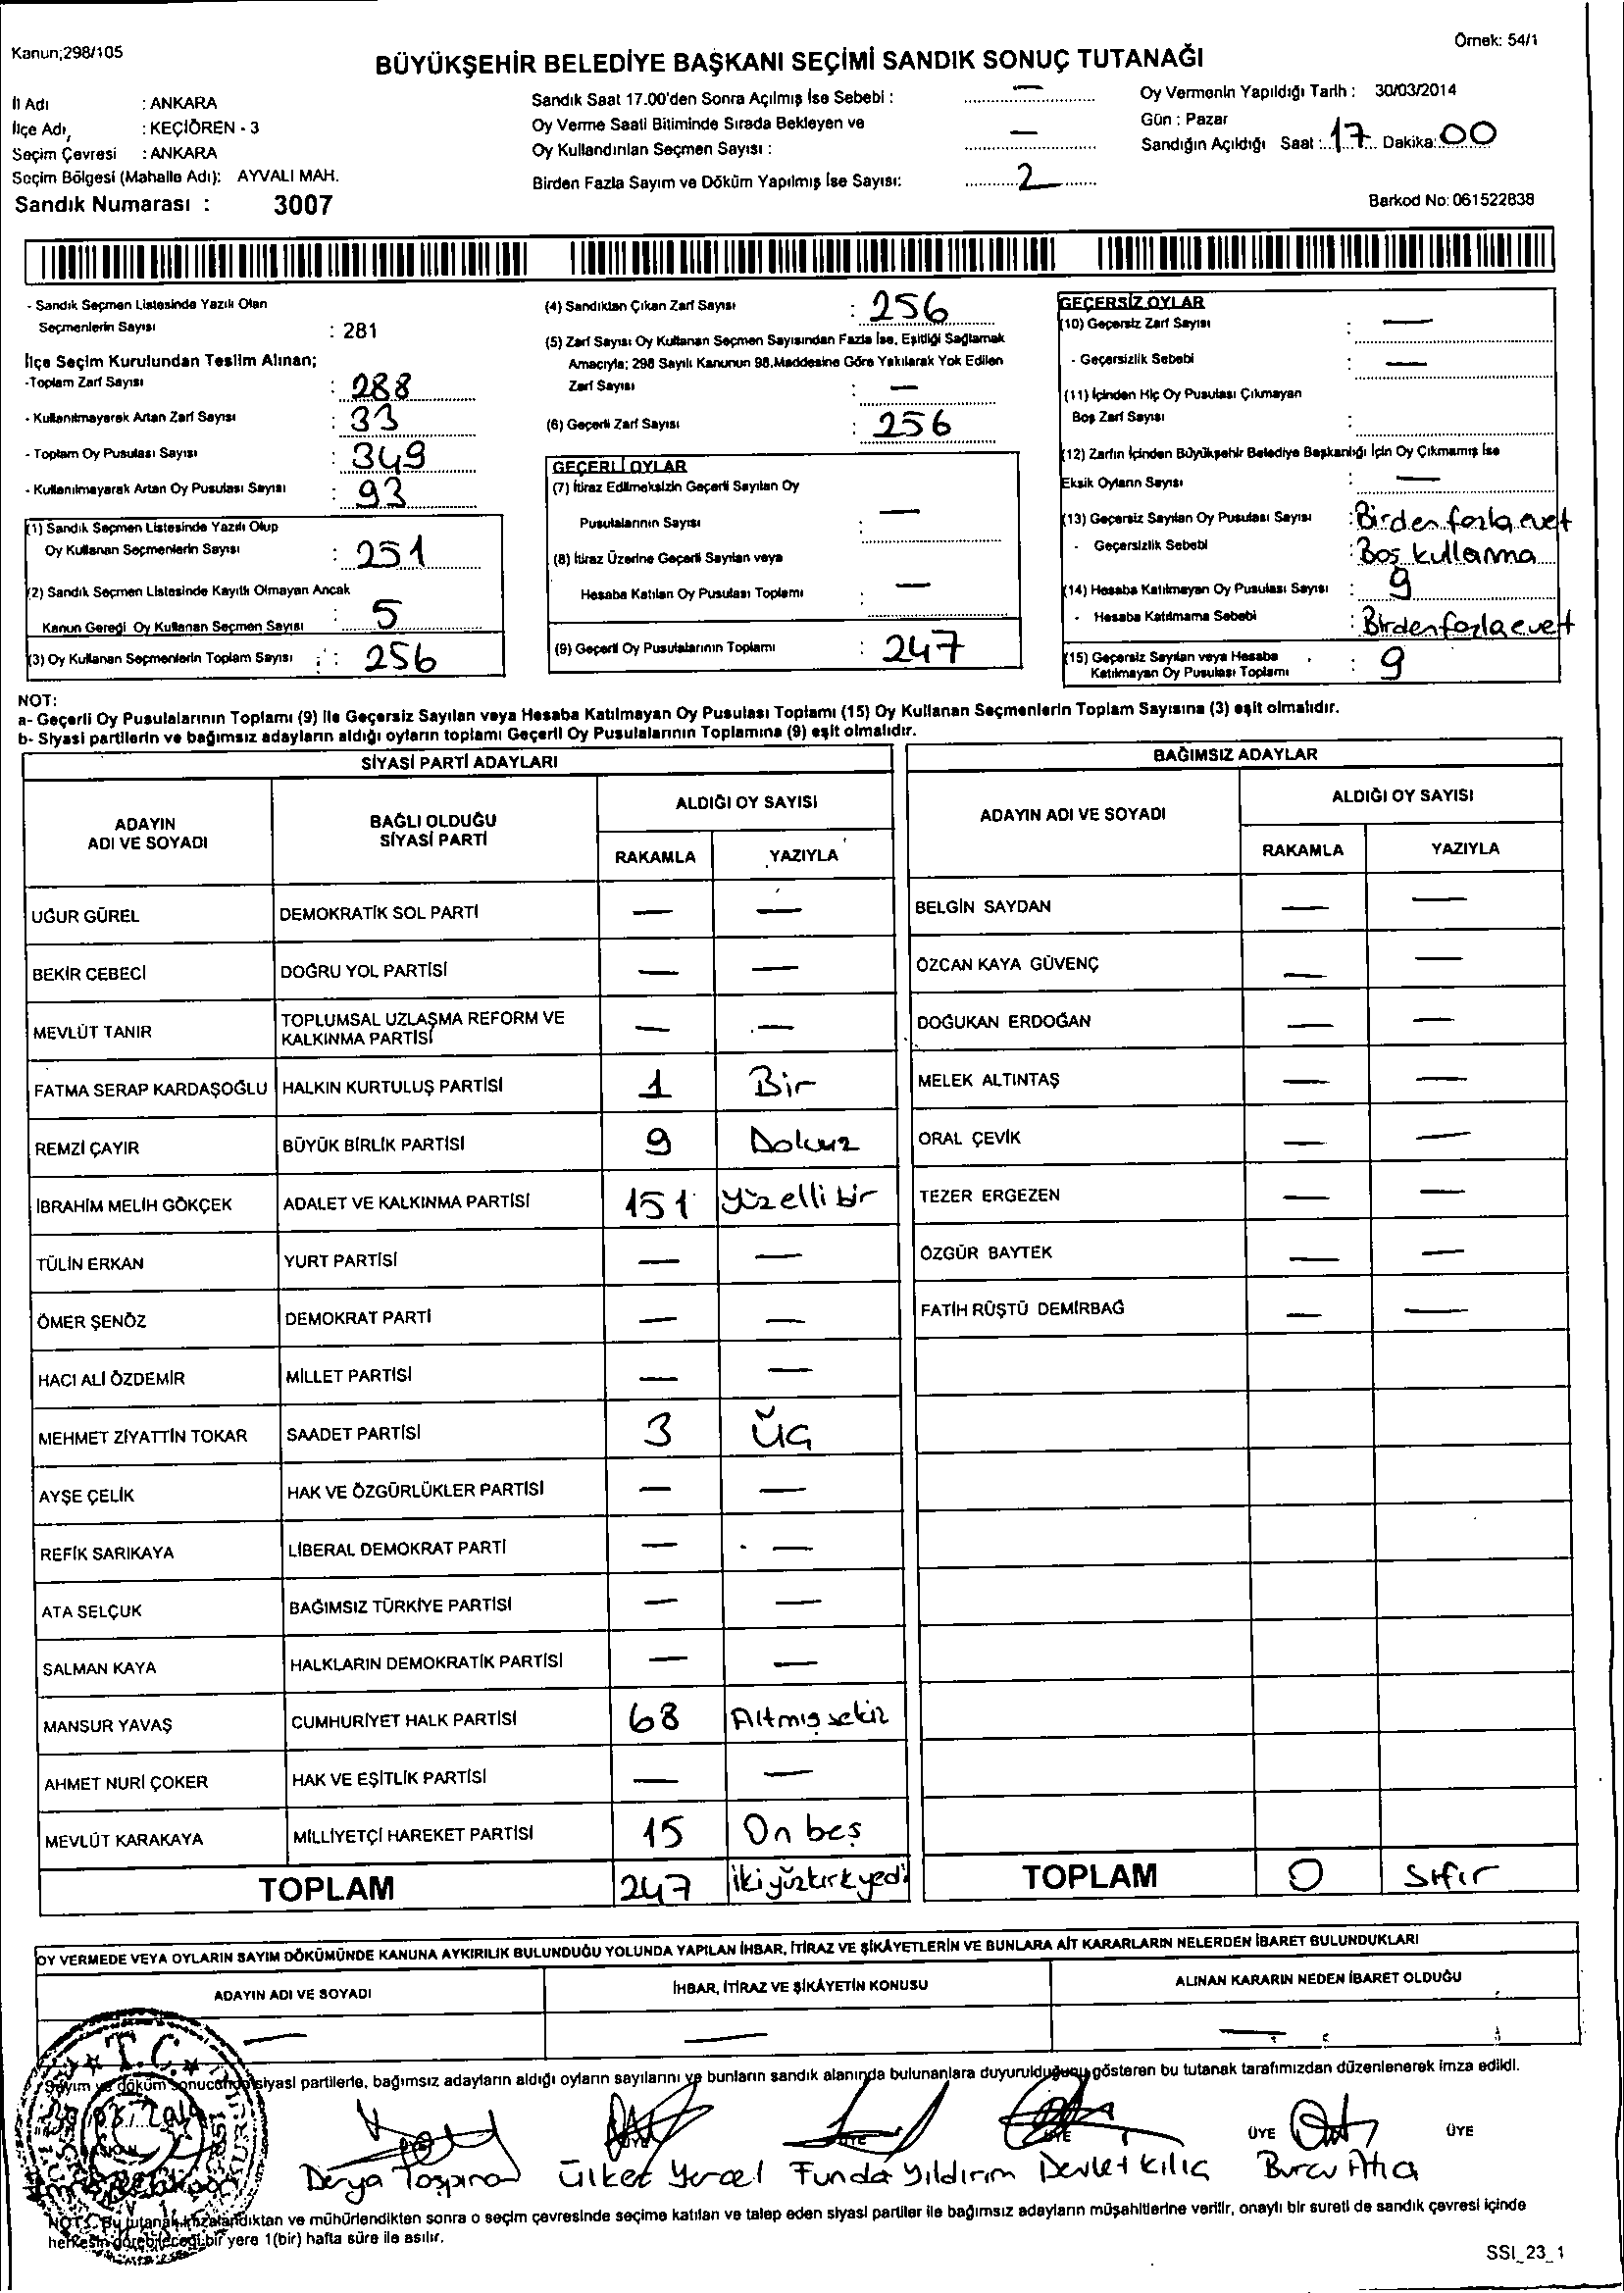 Kanun;298/105
Örnek: 54/1
BÜYÜKŞEHİR BELEDİYE BAŞKANI SEÇİMİ SANDIK SONUÇ TUTANAĞI
İl Adı : ANKARA
İlçe Adı, : KEÇİÖREN - 3
Seçim Çevresi : ANKARA
Seçim Bölgesi (Mahalle Adı): AYVALI MAH.
Sandık Numarası : 3007
Sandık Saat 17.00'den Sonra Açılmış İse Sebebi : —
Oy Verme Saati Bitiminde Sırada Bekleyen ve
Oy Kullandırılan Seçmen Sayısı : —
Birden Fazla Sayım ve Döküm Yapılmış İse Sayısı: 2
Oy Vermenin Yapıldığı Tarih : 30/03/2014
Gün : Pazar
Sandığın Açıldığı Saat : 17 Dakika: 00
Barkod No: 061522838
- Sandık Seçmen Listesinde Yazılı Olan
Seçmenlerin Sayısı : 281
İlçe Seçim Kurulundan Teslim Alınan;
-Toplam Zarf Sayısı : 288
- Kullanılmayarak Artan Zarf Sayısı : 33
- Toplam Oy Pusulası Sayısı : 349
- Kullanılmayarak Artan Oy Pusulası Sayısı : 93
(1) Sandık Seçmen Listesinde Yazılı Olup
Oy Kullanan Seçmenlerin Sayısı : 251
(2) Sandık Seçmen Listesinde Kayıtlı Olmayan Ancak
Kanun Gereği Oy Kullanan Seçmen Sayısı : 5
(3) Oy Kullanan Seçmenlerin Toplam Sayısı : 256
(4) Sandıktan Çıkan Zarf Sayısı : 256
(5) Zarf Sayısı Oy Kullanan Seçmen Sayısından Fazla İse, Eşitliği Sağlamak
Amacıyla; 298 Sayılı Kanunun 98.Maddesine Göre Yakılarak Yok Edilen
Zarf Sayısı : —
(6) Geçerli Zarf Sayısı : 256
GEÇERLİ OYLAR
(7) İtiraz Edilmeksizin Geçerli Sayılan Oy
Pusulalarının Sayısı : —
(8) İtiraz Üzerine Geçerli Sayılan veya
Hesaba Katılan Oy Pusulası Toplamı : —
(9) Geçerli Oy Pusulalarının Toplamı : 247
GEÇERSİZ OYLAR
(10) Geçersiz Zarf Sayısı : —
- Geçersizlik Sebebi : —
(11) İçinden Hiç Oy Pusulası Çıkmayan
Boş Zarf Sayısı :
(12) Zarfın İçinden Büyükşehir Belediye Başkanlığı İçin Oy Çıkmamış İse
Eksik Oyların Sayısı : —
(13) Geçersiz Sayılan Oy Pusulası Sayısı : Birden fazla evet
- Geçersizlik Sebebi : Boş kullanma
(14) Hesaba Katılmayan Oy Pusulası Sayısı : 9
- Hesaba Katılmama Sebebi : Birden fazla evet
(15) Geçersiz Sayılan veya Hesaba
Katılmayan Oy Pusulası Toplamı : 9
NOT:
a- Geçerli Oy Pusulalarının Toplamı (9) ile Geçersiz Sayılan veya Hesaba Katılmayan Oy Pusulası Toplamı (15) Oy Kullanan Seçmenlerin Toplam Sayısına (3) eşit olmalıdır.
b- Siyasi partilerin ve bağımsız adayların aldığı oyların toplamı Geçerli Oy Pusulalarının Toplamına (9) eşit olmalıdır.
SİYASİ PARTİ ADAYLARI
ADAYIN ADI VE SOYADI BAĞLI OLDUĞU SİYASİ PARTİ ALDIĞI OY SAYISI
RAKAMLA YAZIYLA
UĞUR GÜREL DEMOKRATİK SOL PARTİ — —
BEKİR CEBECİ DOĞRU YOL PARTİSİ — —
MEVLÜT TANIR TOPLUMSAL UZLAŞMA REFORM VE KALKINMA PARTİSİ — —
FATMA SERAP KARDAŞOĞLU HALKIN KURTULUŞ PARTİSİ 1 Bir
REMZİ ÇAYIR BÜYÜK BİRLİK PARTİSİ 9 Dokuz
İBRAHİM MELİH GÖKÇEK ADALET VE KALKINMA PARTİSİ 151 Yüzelli bir
TÜLİN ERKAN YURT PARTİSİ — —
ÖMER ŞENÖZ DEMOKRAT PARTİ — —
HACI ALİ ÖZDEMİR MİLLET PARTİSİ — —
MEHMET ZİYATTİN TOKAR SAADET PARTİSİ 3 Üç
AYŞE ÇELİK HAK VE ÖZGÜRLÜKLER PARTİSİ — —
REFİK SARIKAYA LİBERAL DEMOKRAT PARTİ — —
ATA SELÇUK BAĞIMSIZ TÜRKİYE PARTİSİ — —
SALMAN KAYA HALKLARIN DEMOKRATİK PARTİSİ — —
MANSUR YAVAŞ CUMHURİYET HALK PARTİSİ 68 Altmış sekiz
AHMET NURİ ÇOKER HAK VE EŞİTLİK PARTİSİ — —
MEVLÜT KARAKAYA MİLLİYETÇİ HAREKET PARTİSİ 15 On beş
TOPLAM 247 İkiyüzkırkyedi
BAĞIMSIZ ADAYLAR
ADAYIN ADI VE SOYADI ALDIĞI OY SAYISI
RAKAMLA YAZIYLA
BELGİN SAYDAN — —
ÖZCAN KAYA GÜVENÇ — —
DOĞUKAN ERDOĞAN — —
MELEK ALTINTAŞ — —
ORAL ÇEVİK — —
TEZER ERGEZEN — —
ÖZGÜR BAYTEK — —
FATİH RÜŞTÜ DEMİRBAĞ — —
TOPLAM 0 Sıfır
OY VERMEDE VEYA OYLARIN SAYIM DÖKÜMÜNDE KANUNA AYKIRILIK BULUNDUĞU YOLUNDA YAPILAN İHBAR, İTİRAZ VE ŞİKÂYETLERİN VE BUNLARA AİT KARARLARIN NELERDEN İBARET BULUNDUKLARI
ADAYIN ADI VE SOYADI İHBAR, İTİRAZ VE ŞİKÂYETİN KONUSU ALINAN KARARIN NEDEN İBARET OLDUĞU
— — —
T.C.
Sayım ve döküm sonucunda siyasi partilerle, bağımsız adayların aldığı oyların sayılarını ve bunların sandık alanında bulunanlara duyurulduğunu gösteren bu tutanak tarafımızdan düzenlenerek imza edildi.
ÜYE ÜYE ÜYE ÜYE ÜYE
Derya Taşpınar Ülker Yücel Funda Yıldırım Devlet Kılıç Burcu Atıcı
NOT: Bu tutanak imzalandıktan ve mühürlendikten sonra o seçim çevresinde seçime katılan ve talep eden siyasi partiler ile bağımsız adayların müşahitlerine verilir, onaylı bir sureti de sandık çevresi içinde
herkesin görebileceği bir yere 1(bir) hafta süre ile asılır.
SSI_23_1